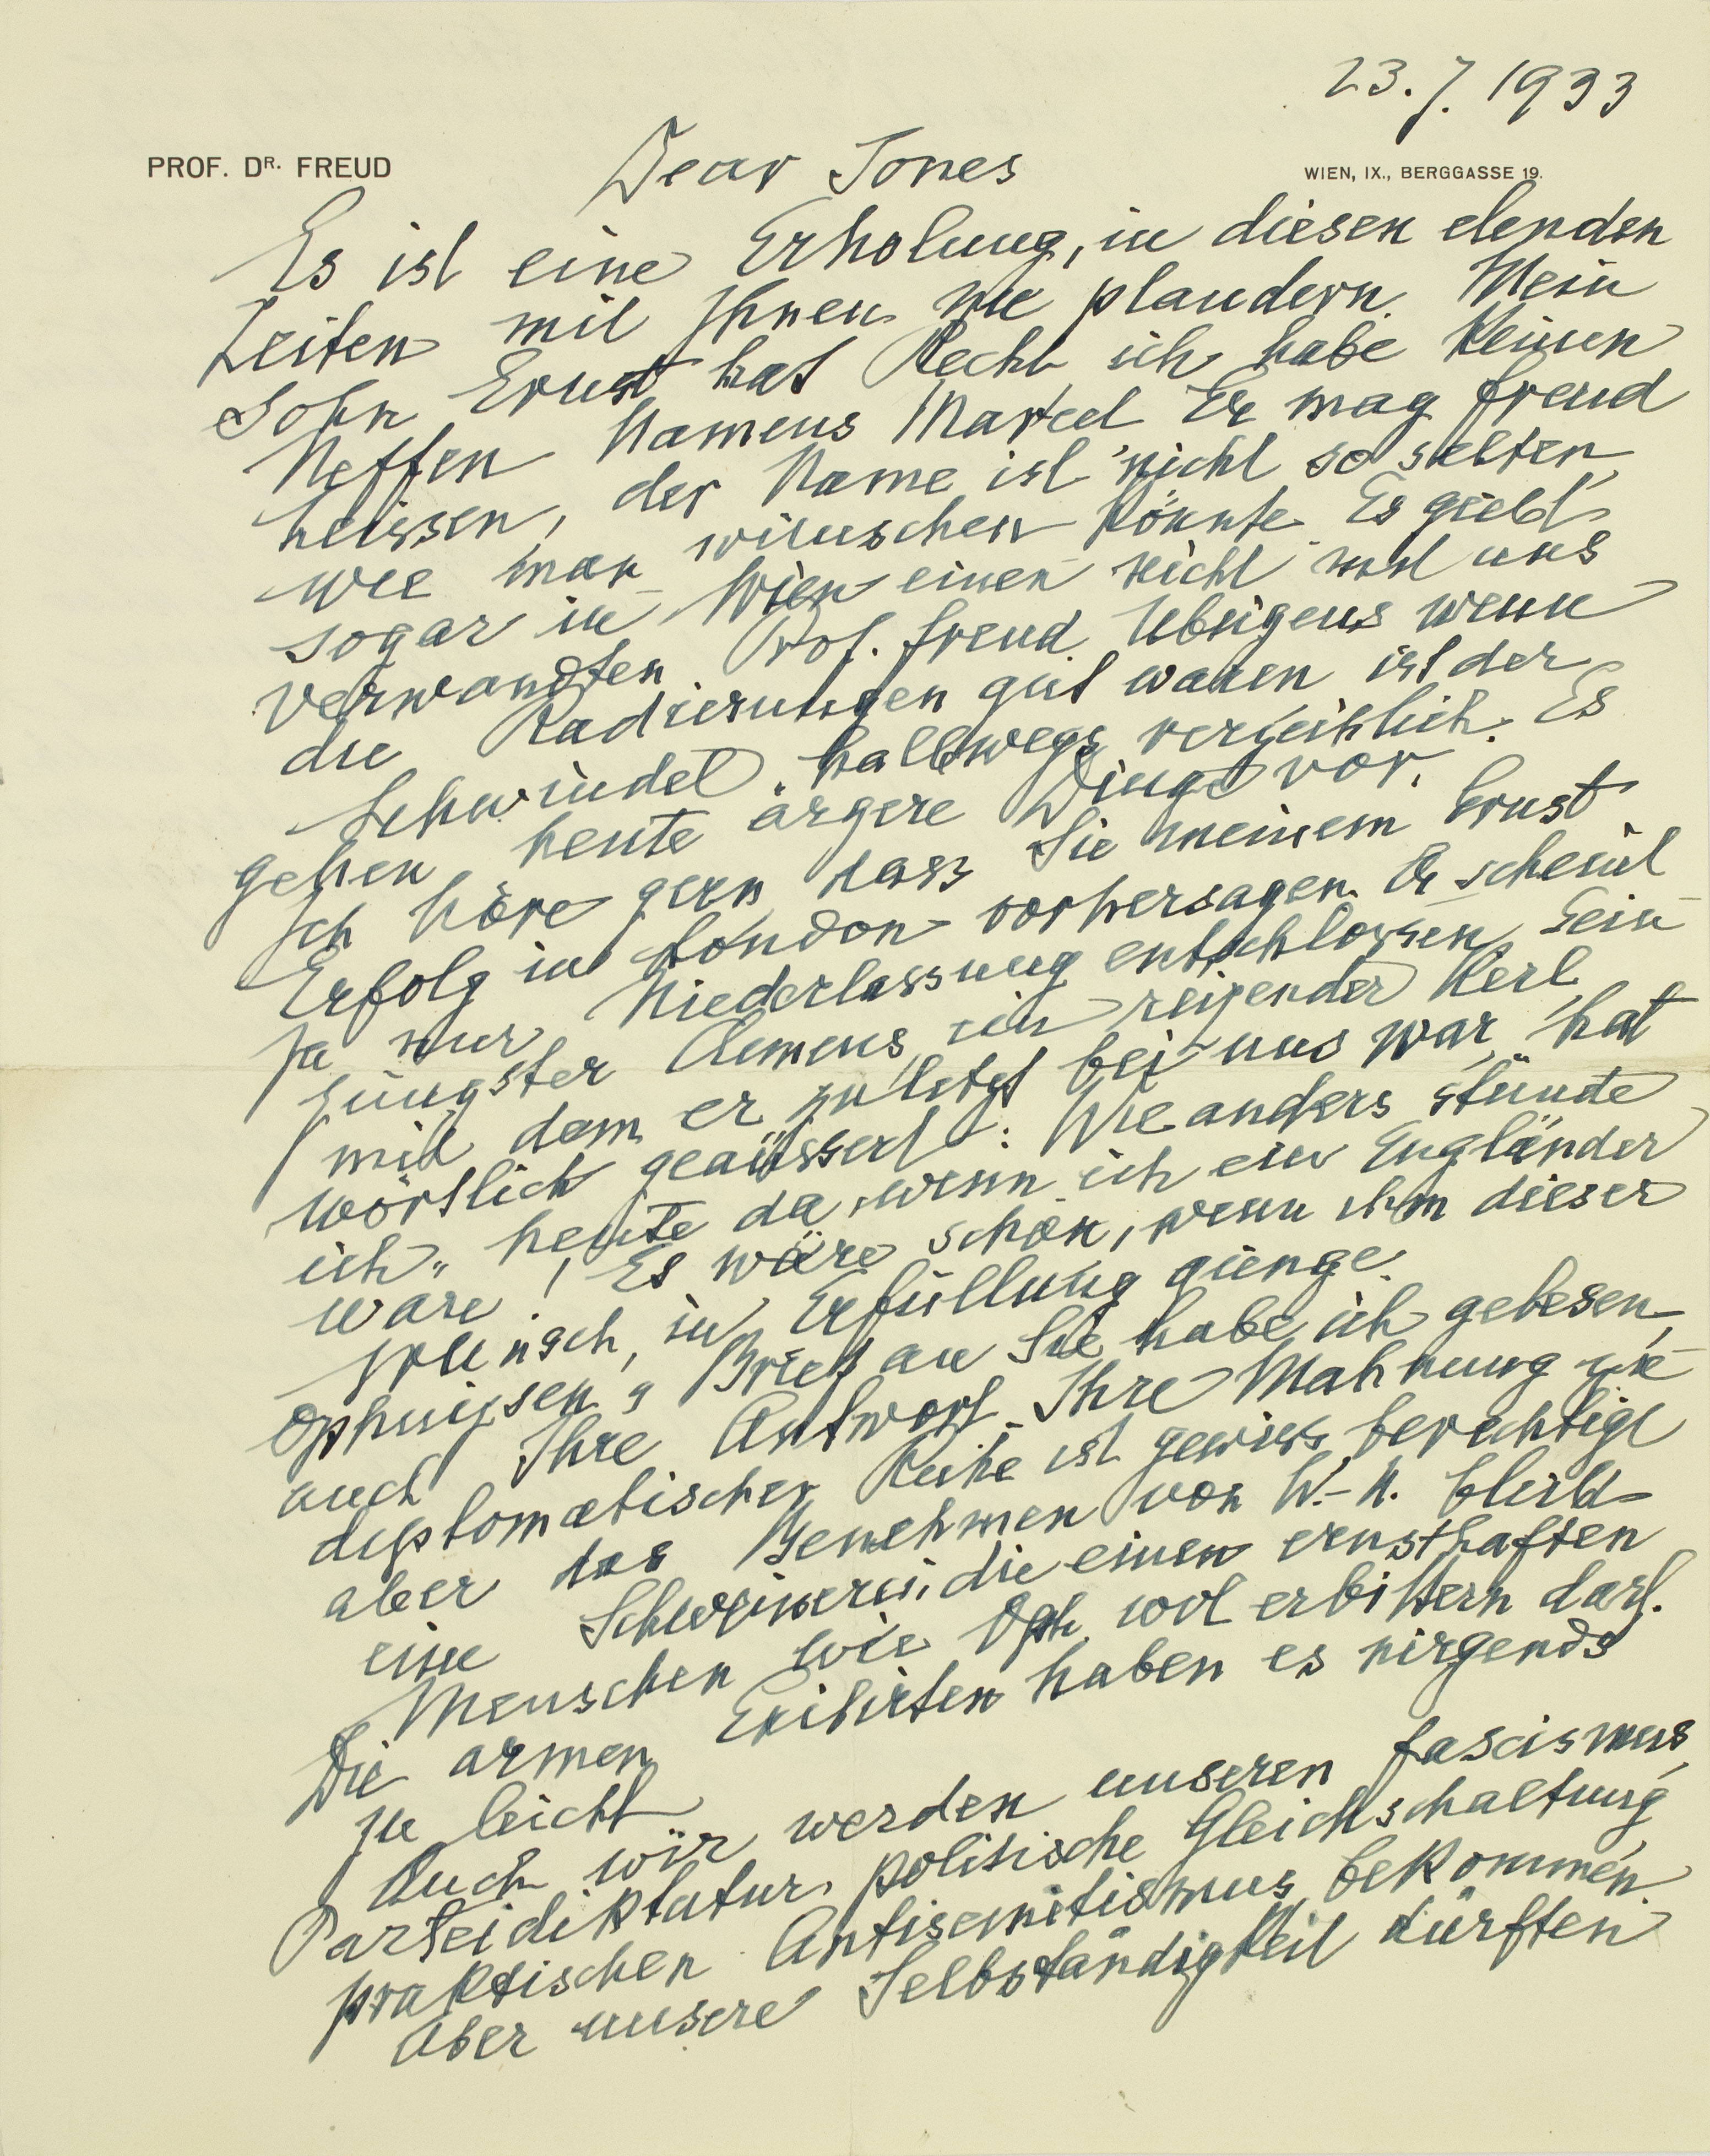 23.7.1933
PROF. DR. FREUD
WIEN, IX., BERGGASSE 19.
Dear Jones
Es ist eine Erholung, in diesen elenden
Zeiten mit Ihnen zu plaudern. Mein
Sohn Ernst hat Recht ich habe keinen
Neffen Namens Martel Er mag Freud
heissen, der Name ist nicht so selten,
wie man wünschen könnte. Es giebt
sogar in Wien einen nicht mit uns
verwandten Prof. Freud. Übrigens wenn
die Radierungen gut waren ist der
Schwindel halbwegs verzeihlich. Es
gehen heute ärgere Dinge vor.
Ich höre gern dass Sie meinem Ernst
Erfolg in London vorhersagen. Er scheint
ja zur Niederlassung entschlossen. Sein
Jüngster Clemens, ein reizender Kerl
mit dem er zuletzt bei uns war, hat
wörtlich geäussert: Wie anders stünde
ich heute da, wenn ich ein Engländer
wäre! Es wäre schön, wenn ihm dieser
Wunsch, in Erfüllung gienge.
Ophuijsen's Brief an Sie habe ich gelesen,
auch Ihre Antwort. Ihre Mahnung zur
diplomatischer Ruhe ist gewiss berechtigt
aber das Benehmen von W.-H. bleibt
eine Schweinerei, die einen ernsthaften
Menschen wie Oph. wol erbittern darf.
Die armen Exilirten haben es nirgends
zu leicht
Auch wir werden unseren Fascismus,
Parteidiktatur, politische Gleichschaltung
praktischen Antisemitismus bekommen.
Aber unsere Selbständigkeit dürften